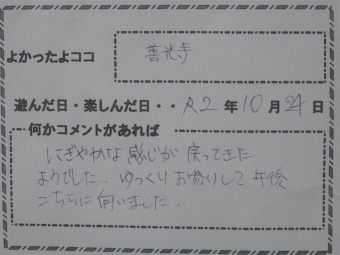 よかったよココ 善光寺
遊んだ日・楽しんだ日・・ R2年10月24日
何かコメントがあれば
にぎやかな感じが戻ってきた
ようでした。ゆっくりお参りして午後
こちらに伺いました。